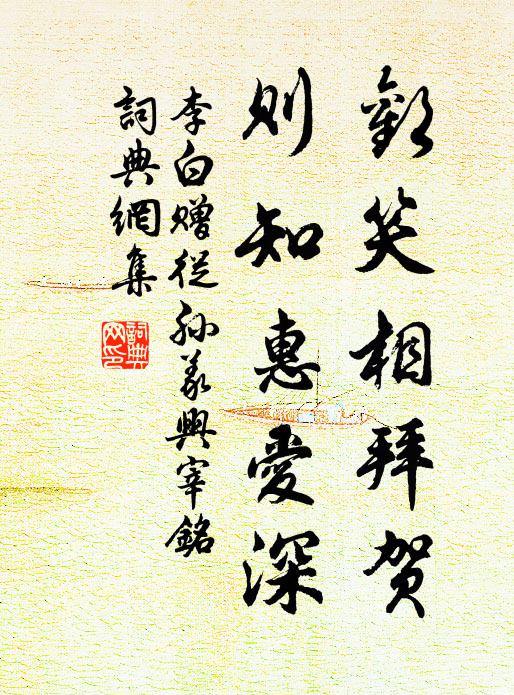 歡笑相拜賀
則知惠愛深
李白贈從孫義興宰銘
詞典網集
詞典網印